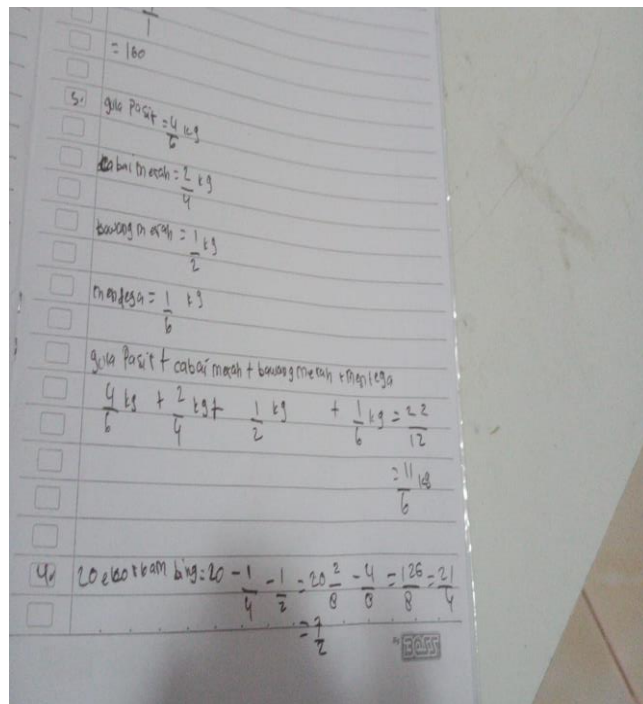 1
= 160
3. gula Pasir = 4/6 kg
cabai merah = 2/4 kg
bawang merah = 1/2 kg
mentega = 1/6 kg
gula Pasir + cabai merah + bawang merah + mentega
4/6 kg + 2/4 kg + 1/2 kg + 1/6 kg = 22/12
= 11/6 kg
4. 20 ekor kambing = 20 - 1/4 - 1/2 = 20 2/8 - 4/8 = 126/8 = 21/4
= 7/2
BOSS